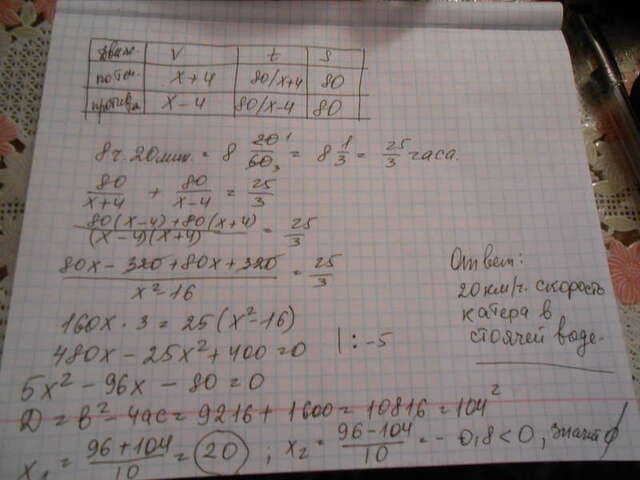 движ. V t S
по теч. x+4 80/x+4 80
против x-4 80/x-4 80
8 ч. 20 мин. = 8 20/60 = 8 1/3 = 25/3 часа.
80/(x+4) + 80/(x-4) = 25/3
(80(x-4)+80(x+4))/((x-4)(x+4)) = 25/3
(80x-320+80x+320)/(x²-16) = 25/3
160x·3=25(x²-16)
480x-25x²+400=0 |:-5
5x²-96x-80=0
D=b²-4ac=9216+1600=10816=104²
x₁=(96+104)/10=20; x₂=(96-104)/10=-0,8<0, значит ∅
Ответ:
20 км/ч. скорость
катера в
стоячей воде.